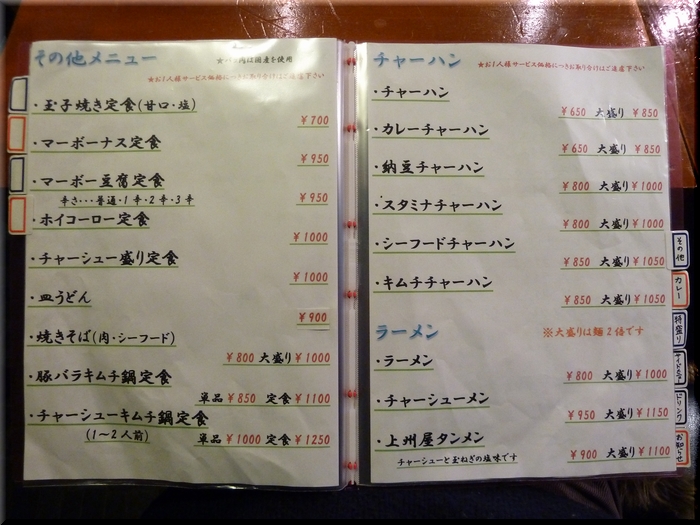 その他メニュー
肉は国産を使用
★お1人様サービス価格につきお取り分けはご遠慮下さい
・玉子焼き定食(甘口・塩)
¥700
・マーボーナス定食
¥950
・マーボー豆腐定食
辛さ…普通・1辛・2辛・3辛 ¥950
・ホイコーロー定食
¥1000
・チャーシュー盛り定食
¥1000
・皿うどん
¥900
・焼きそば(肉・シーフード)
¥800 大盛り¥1000
・豚バラキムチ鍋定食
単品¥850 定食¥1100
・チャーシューキムチ鍋定食
(1～2人前) 単品¥1000 定食¥1250
チャーハン
★お1人様サービス価格につきお取り分けはご遠慮下さい
・チャーハン
¥650 大盛り ¥850
・カレーチャーハン
¥650 大盛り ¥850
・納豆チャーハン
¥800 大盛り¥1000
・スタミナチャーハン
¥800 大盛り¥1000
・シーフードチャーハン
¥850 大盛り¥1050
・キムチチャーハン
¥850 大盛り¥1050
ラーメン
※大盛りは麺2倍です
・ラーメン
¥800 大盛り¥1000
・チャーシューメン
¥950 大盛り¥1150
・上州屋タンメン
チャーシューと玉ねぎの塩味です ¥900 大盛り¥1100
その他
カレー
特盛り
サイドメニュー
ドリンク
お知らせ